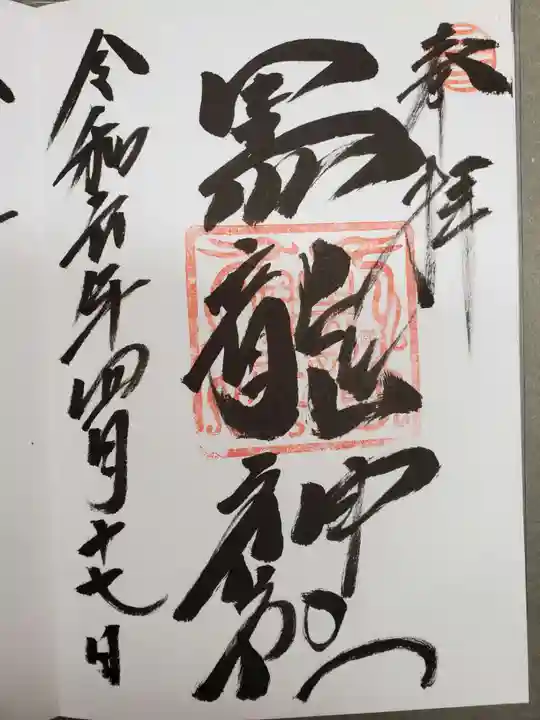 奉拝
黒龍神
令和六年四月十七日